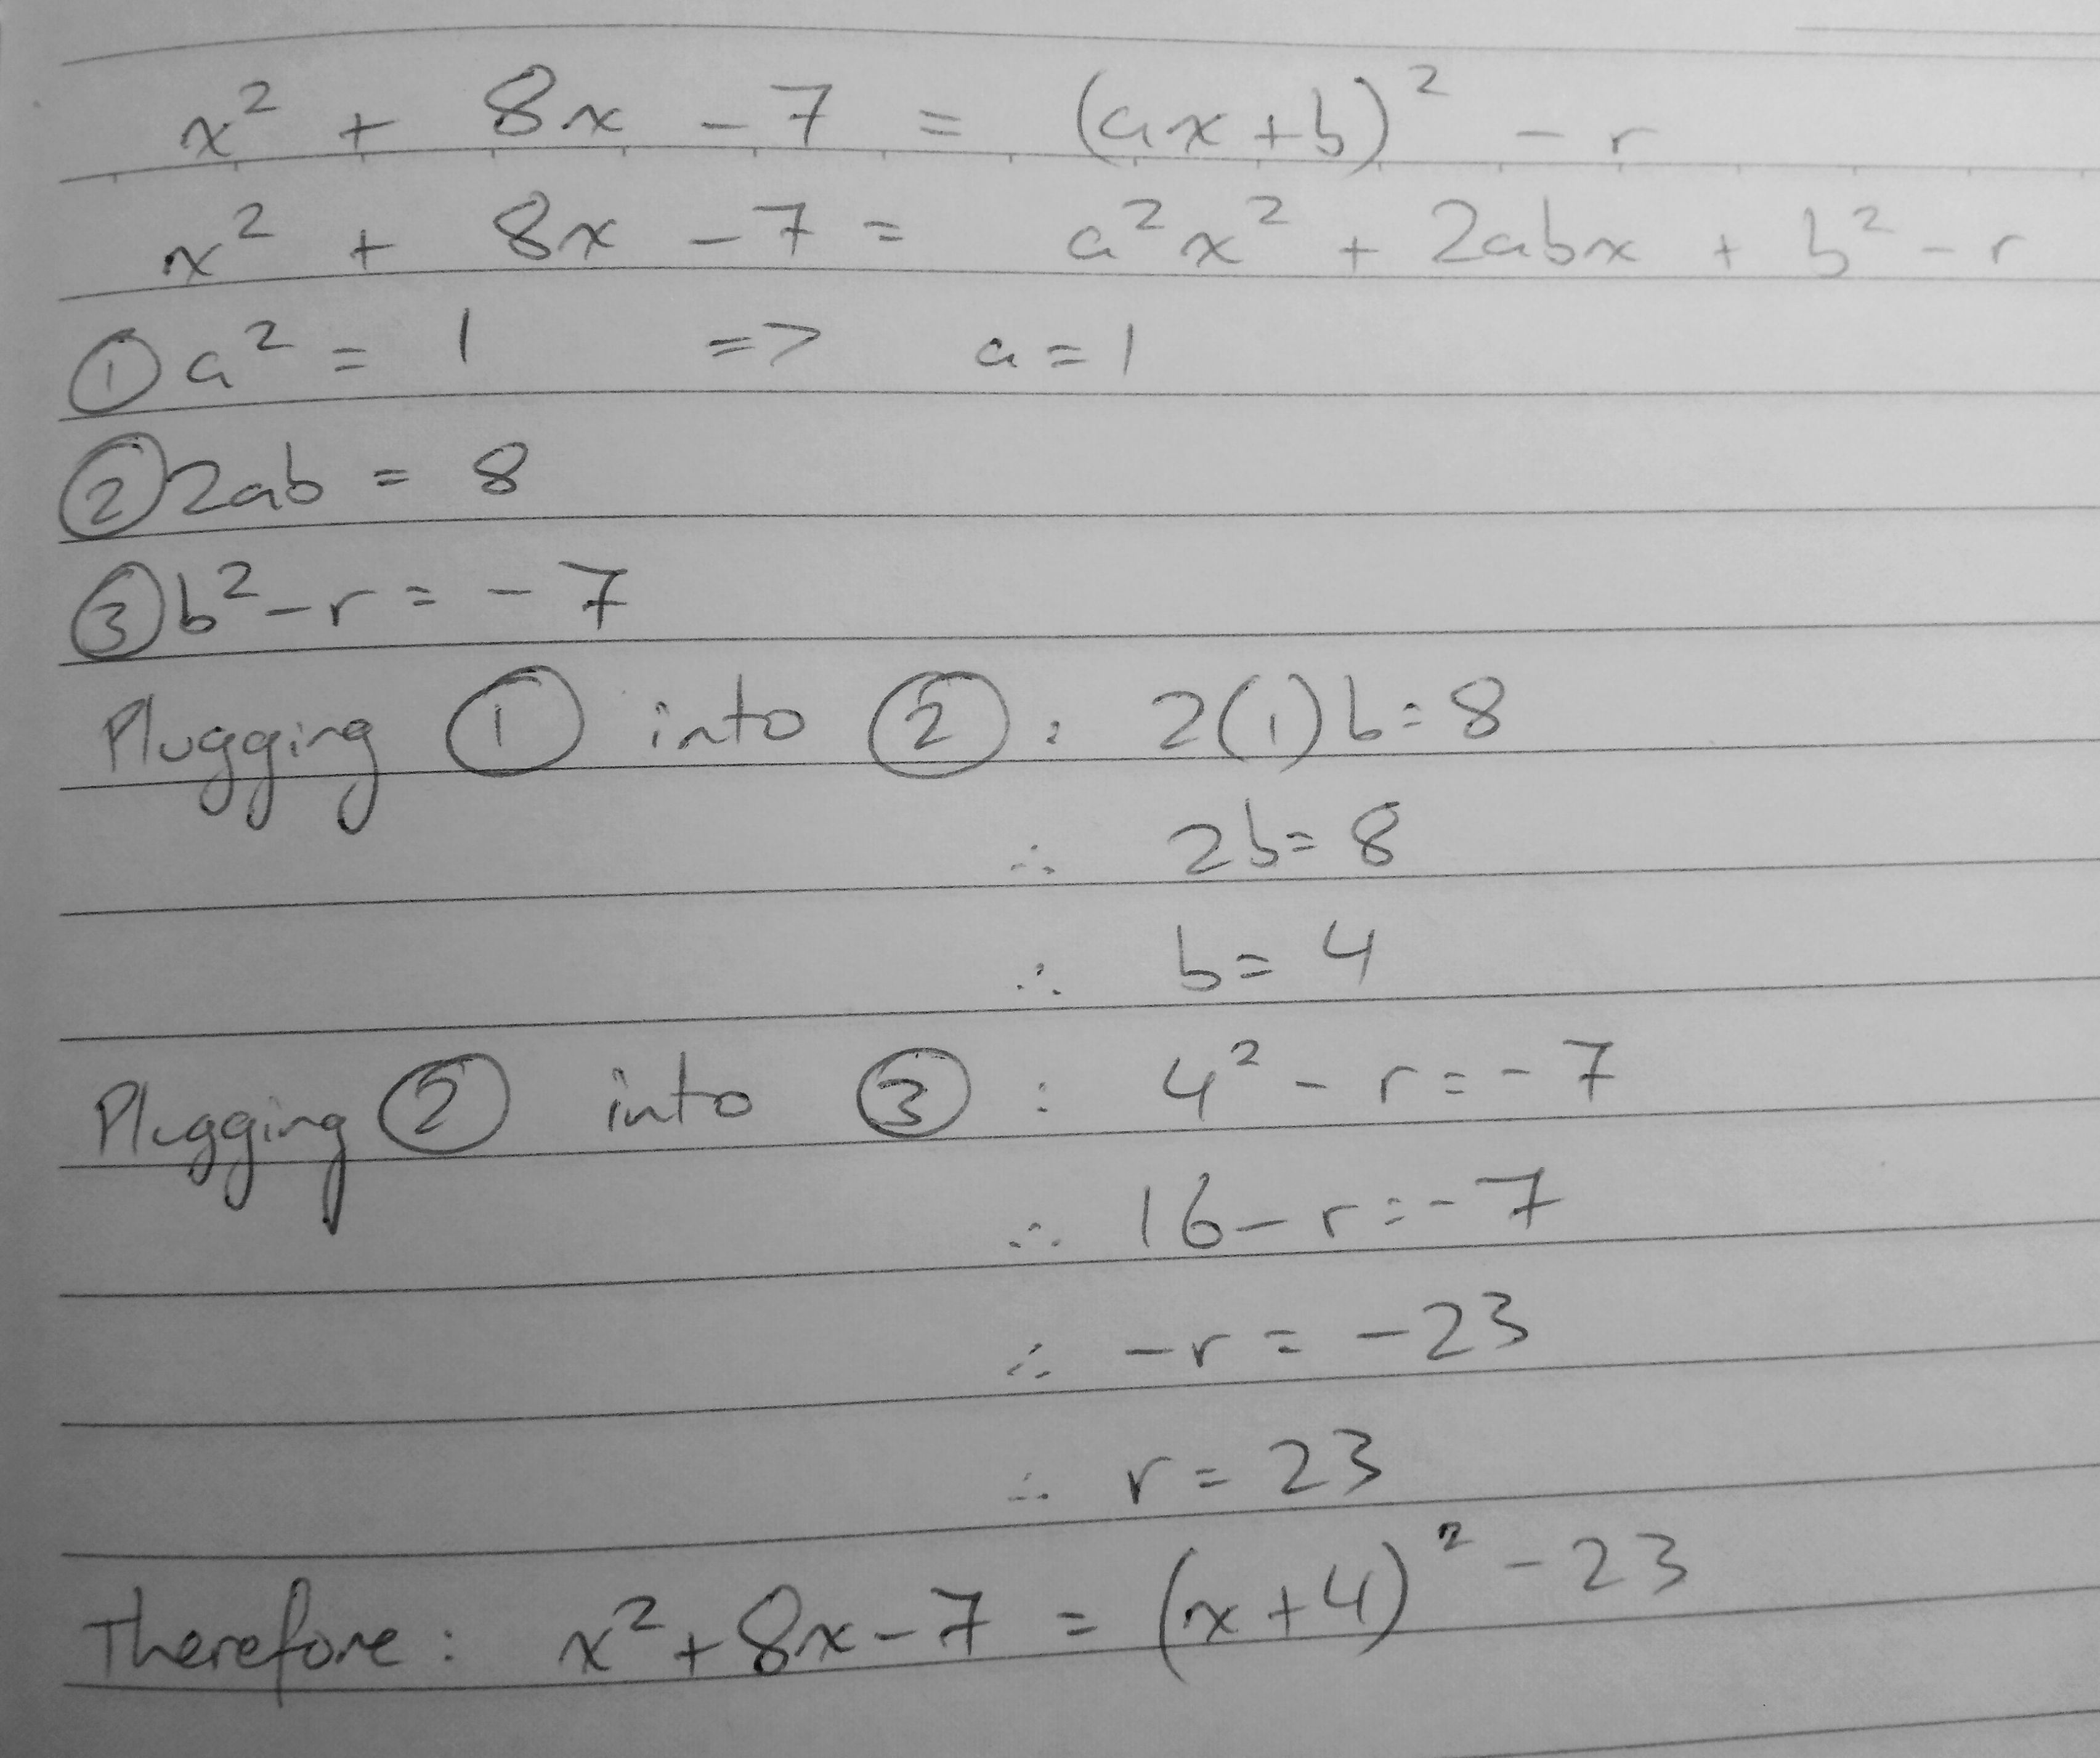 x² + 8x - 7 = (ax+b)² - r
x² + 8x - 7 = a²x² + 2abx + b² - r
① a² = 1 => a = 1
② 2ab = 8
③ b² - r = - 7
Plugging ① into ② : 2(1)b = 8
∴ 2b = 8
∴ b = 4
Plugging ② into ③ : 4² - r = - 7
∴ 16 - r = - 7
∴ -r = -23
∴ r = 23
Therefore : x² + 8x - 7 = (x+4)² - 23